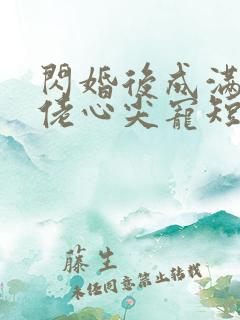 閃婚後成滿
佬心尖寵短
藤生
未經同意禁止轉載